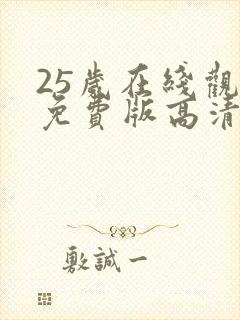 25歲在綫觀
免費版高清
敷誠一